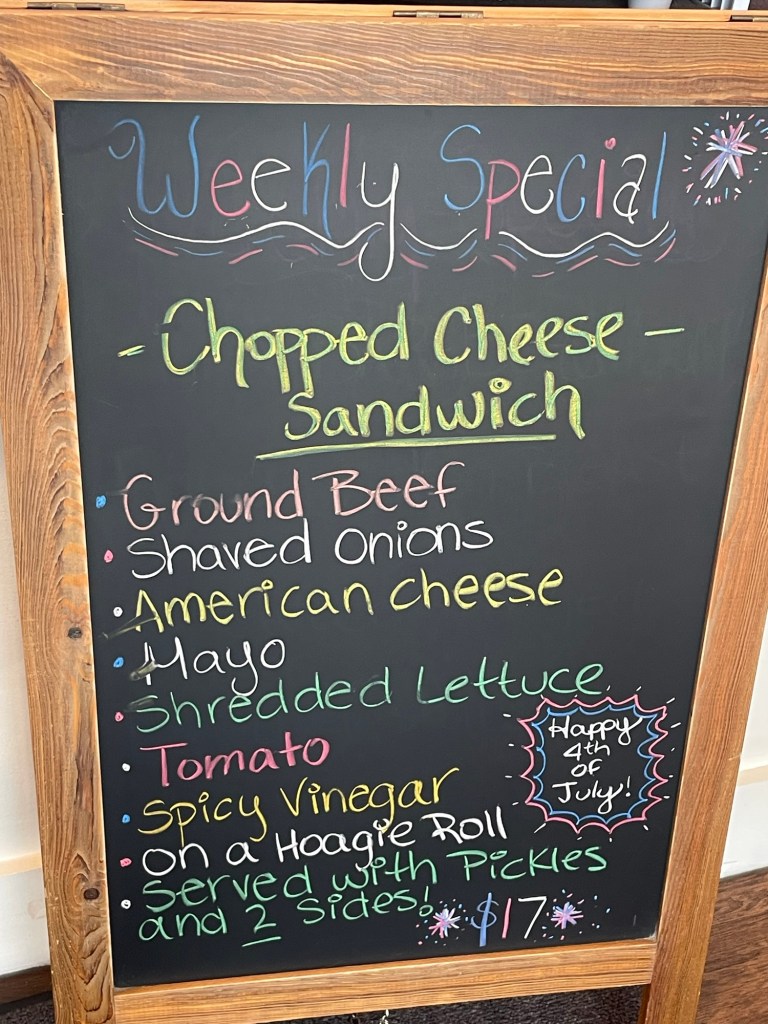 Weekly Special
- Chopped Cheese -
Sandwich
• Ground Beef
• Shaved Onions
• American cheese
• Mayo
• Shredded Lettuce
• Tomato
• Spicy Vinegar
• on a Hoagie Roll
• Served with Pickles
and 2 Sides!
$17
Happy
4th
of
July!